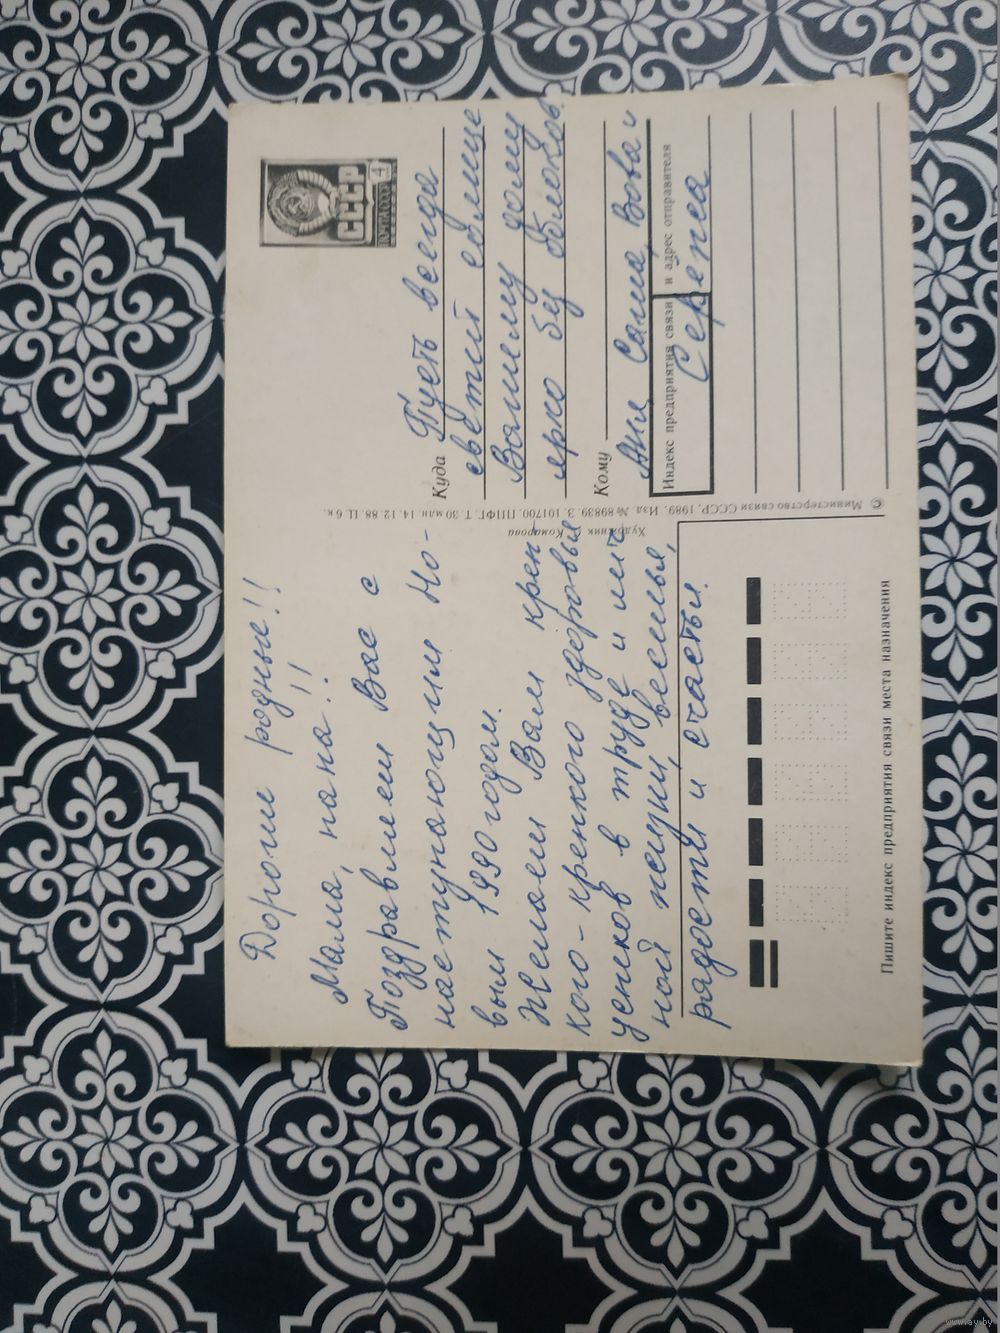 Дорогие родные!!
Мама, папа!!
Поздравляем Вас с
наступающим Но-
вым 1990 годом.
Желаем Вам креп-
кого-крепкого здоровья
успехов в труде и лич-
ной жизни, веселья,
радости и счастья.
Пишите индекс предприятия связи места назначения
Художник Комарова
© Министерство связи СССР, 1989. Изд. № 89839. З. 101700. ППФГ. Т. 30 млн. 14. 12. 88. Ц. 6 к.
СССР
ПОЧТА СССР
4
Куда Пусть всегда
светит солнце
Вашему дому
ярко без облаков.
Кому
Аня, Саша, Вова и
Индекс предприятия связи и адрес отправителя
Сережа
www.ay.by